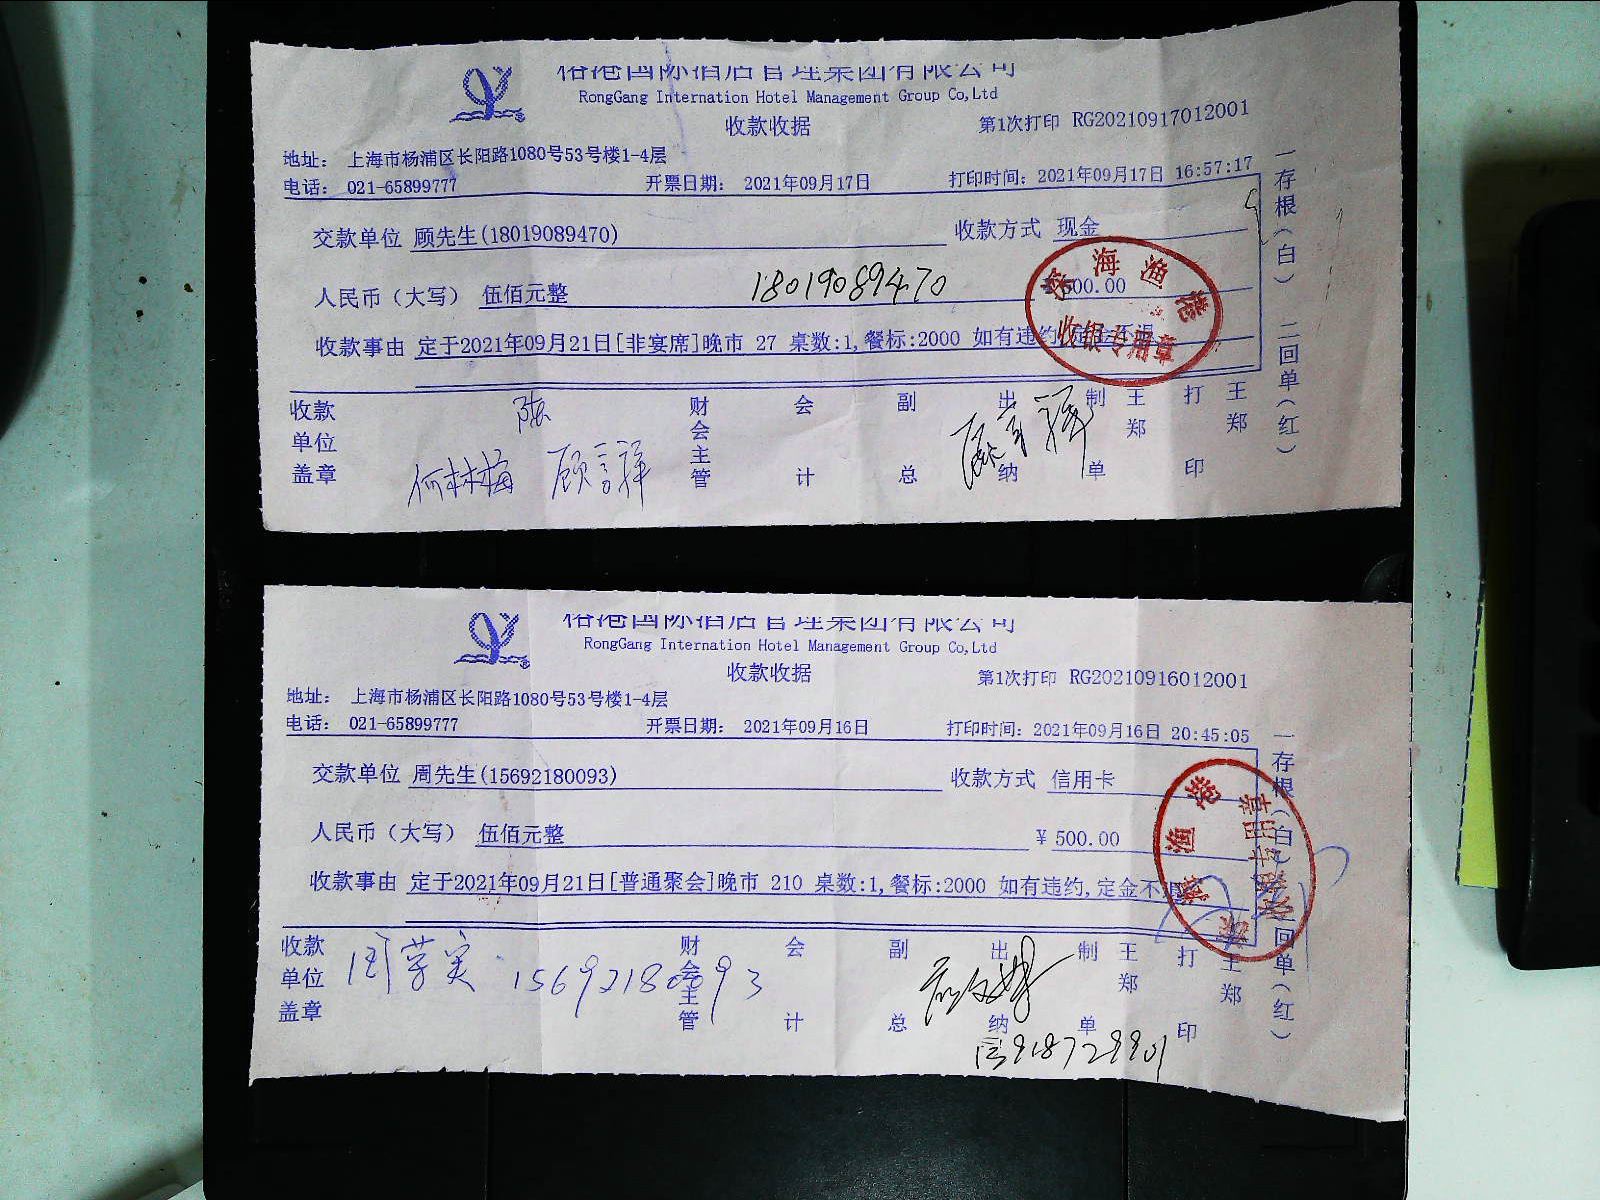 榕港国际酒店管理集团有限公司
RongGang Internation Hotel Management Group Co,Ltd
收款收据
第1次打印 RG20210917012001
地址： 上海市杨浦区长阳路1080号53号楼1-4层
电话： 021-65899777 开票日期： 2021年09月17日 打印时间：2021年09月17日 16:57:17
交款单位 顾先生(18019089470) 收款方式 现金
人民币（大写） 伍佰元整 18019089470 ¥500.00
收款事由 定于2021年09月21日[非宴席]晚市 27 桌数:1,餐标:2000 如有违约,定金不退
深海渔港
收银专用章
收款单位盖章 陈 何林梅 顾言祥 财会主管 会计 副总 出纳 制单 王郑 打印 王郑
一存根（白） 二回单（红）
榕港国际酒店管理集团有限公司
RongGang Internation Hotel Management Group Co,Ltd
收款收据
第1次打印 RG20210916012001
地址： 上海市杨浦区长阳路1080号53号楼1-4层
电话： 021-65899777 开票日期： 2021年09月16日 打印时间：2021年09月16日 20:45:05
交款单位 周先生(15692180093) 收款方式 信用卡
人民币（大写） 伍佰元整 ¥500.00
收款事由 定于2021年09月21日[普通聚会]晚市 210 桌数:1,餐标:2000 如有违约,定金不退
深海渔港
收银专用章
收款单位盖章 15692180093 财会主管 会计 副总 出纳 制单 王郑 打印 王郑
一存根（白） 二回单（红）